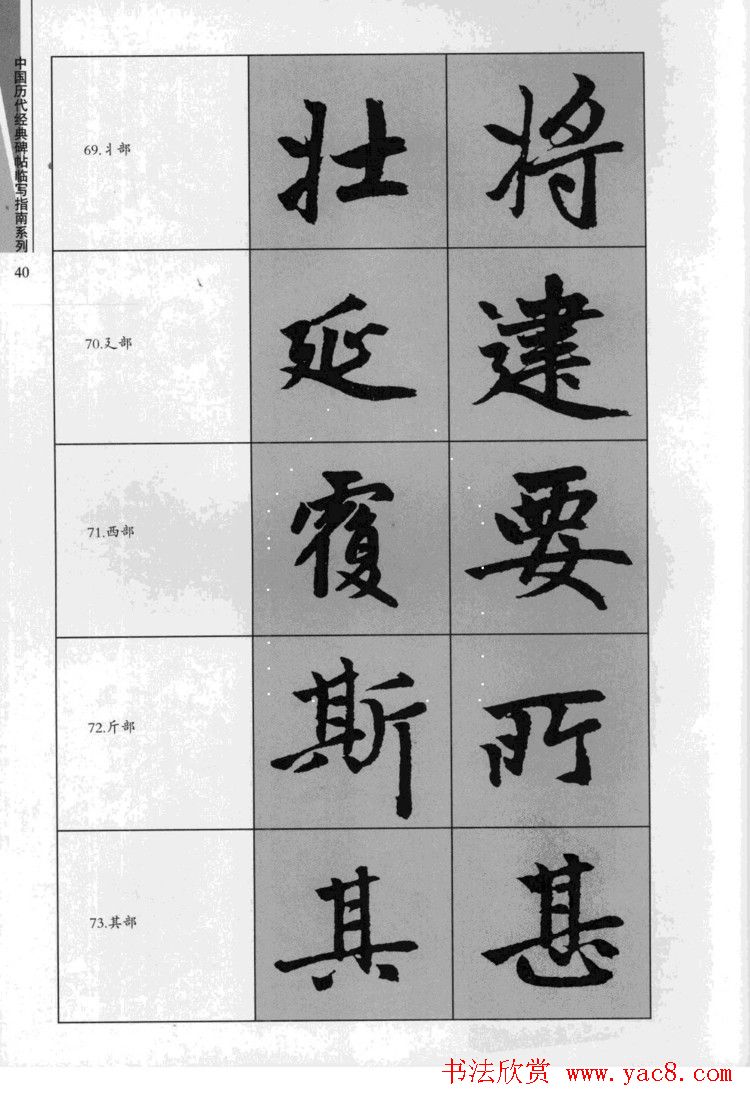 中国历代经典碑帖临写指南系列
40
69.丬部
壮
将
70.廴部
延
建
71.西部
覆
要
72.斤部
斯
所
73.其部
其
甚
书法欣赏 www.yac8.com